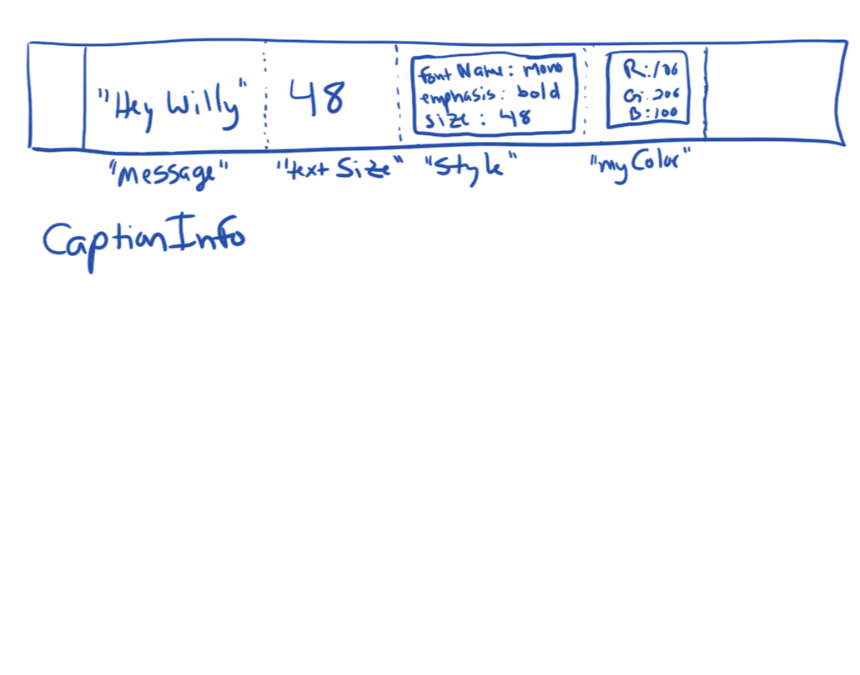 "Hey Willy"
48
font Name: mono
emphasis: bold
size: 48
R:106
G:206
B:100
"message"
"text Size"
"Style"
"myColor"
CaptionInfo